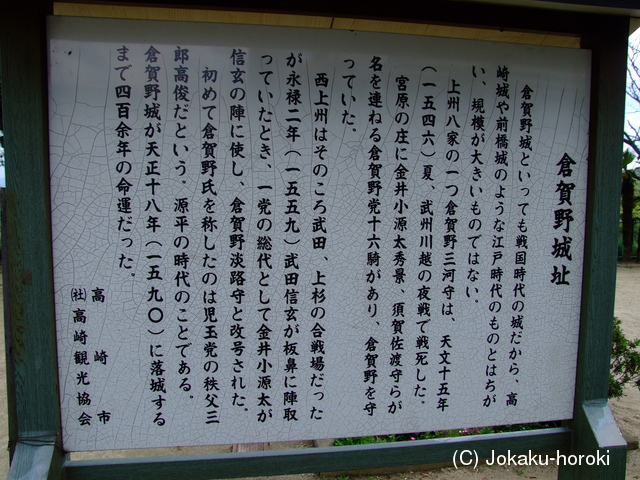 倉賀野城址
倉賀野城といっても戦国時代の城だから、高
崎城や前橋城のような江戸時代のものとはちが
い、規模が大きいものではない。
上州八家の一つ倉賀野三河守は、天文十五年
（一五四六）夏、武州川越の夜戦で戦死した。
宮原の庄に金井小源太秀景、須賀佐渡守らが
名を連ねる倉賀野党十六騎があり、倉賀野を守
っていた。
西上州はそのころ武田、上杉の合戦場だった
が永禄二年（一五五九）武田信玄が板鼻に陣取
っていたとき、一党の総代として金井小源太が
信玄の陣に使し、倉賀野淡路守と改号された。
初めて倉賀野氏を称したのは児玉党の秩父三
郎高俊だという。源平の時代のことである。
倉賀野城が天正十八年（一五九〇）に落城する
まで四百余年の命運だった。
高崎市
㈳高崎観光協会
(C) Jokaku-horoki